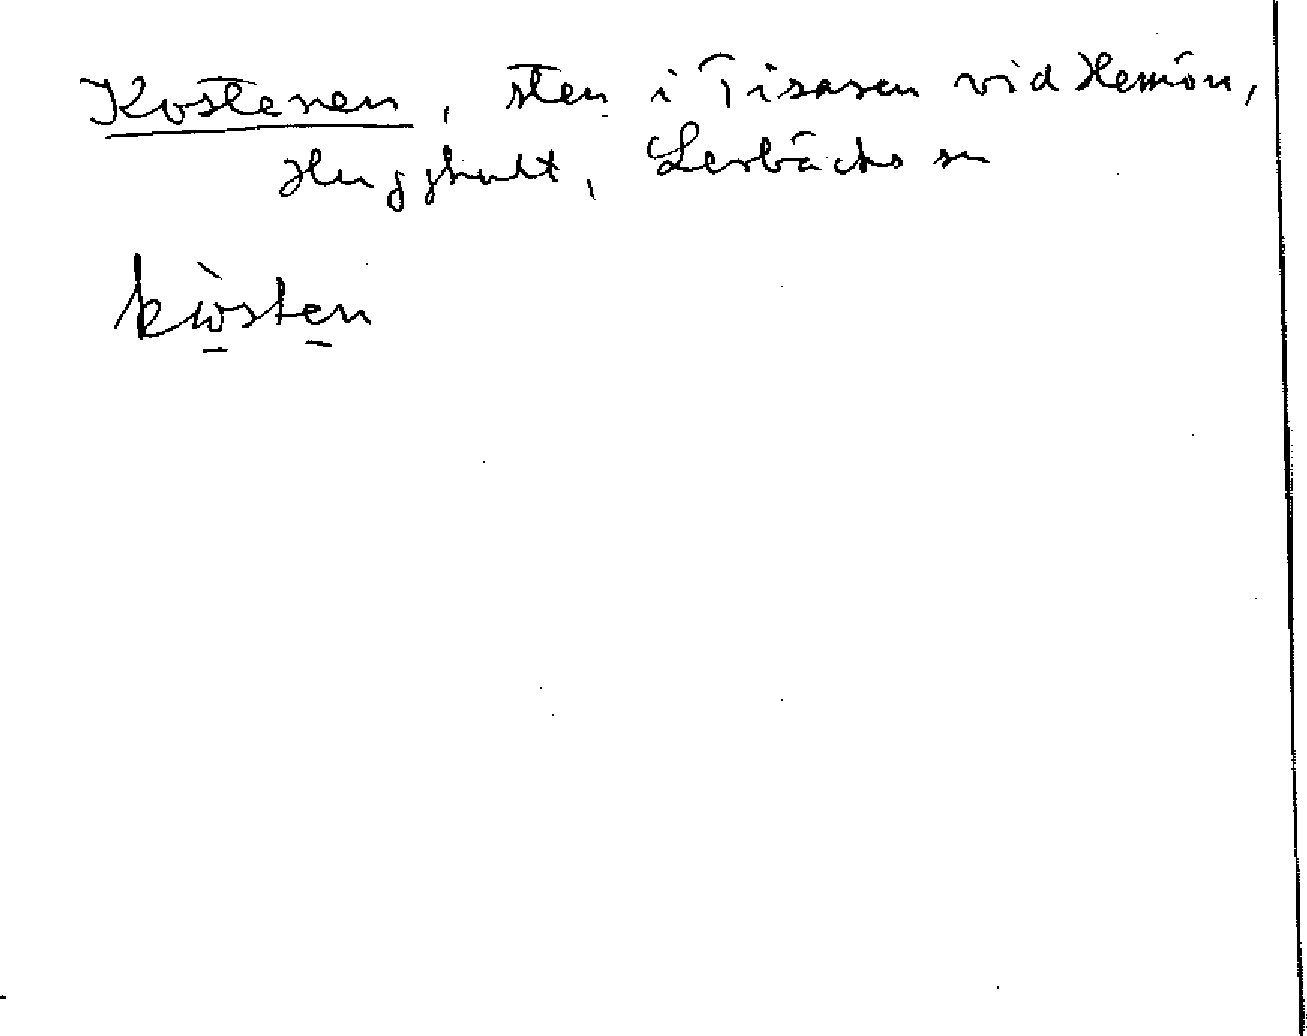 Kostenen, sten i Tisaren vid Hemön,
Hugghult, Lerbäcks sn
kwòsten